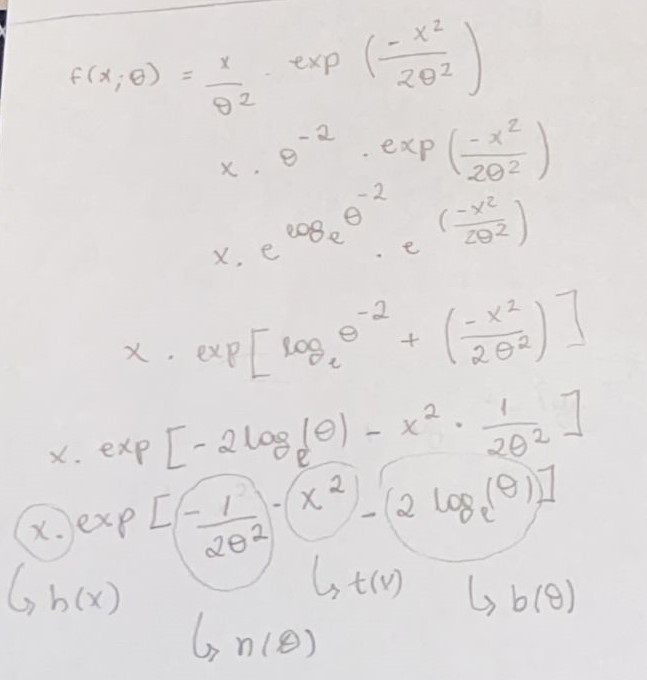 f(x;θ) = x/θ² · exp (-x²/2θ²)
x · θ⁻² · exp (-x²/2θ²)
x · e^(logₑ θ⁻²) · e^(-x²/2θ²)
x · exp[ logₑ θ⁻² + (-x²/2θ²) ]
x · exp [ -2 logₑ(θ) - x² · 1/2θ² ]
x · exp [ -1/2θ² · x² - (2 logₑ(θ) ]
↳ h(x) ↳ n(θ) ↳ t(x) ↳ b(θ)